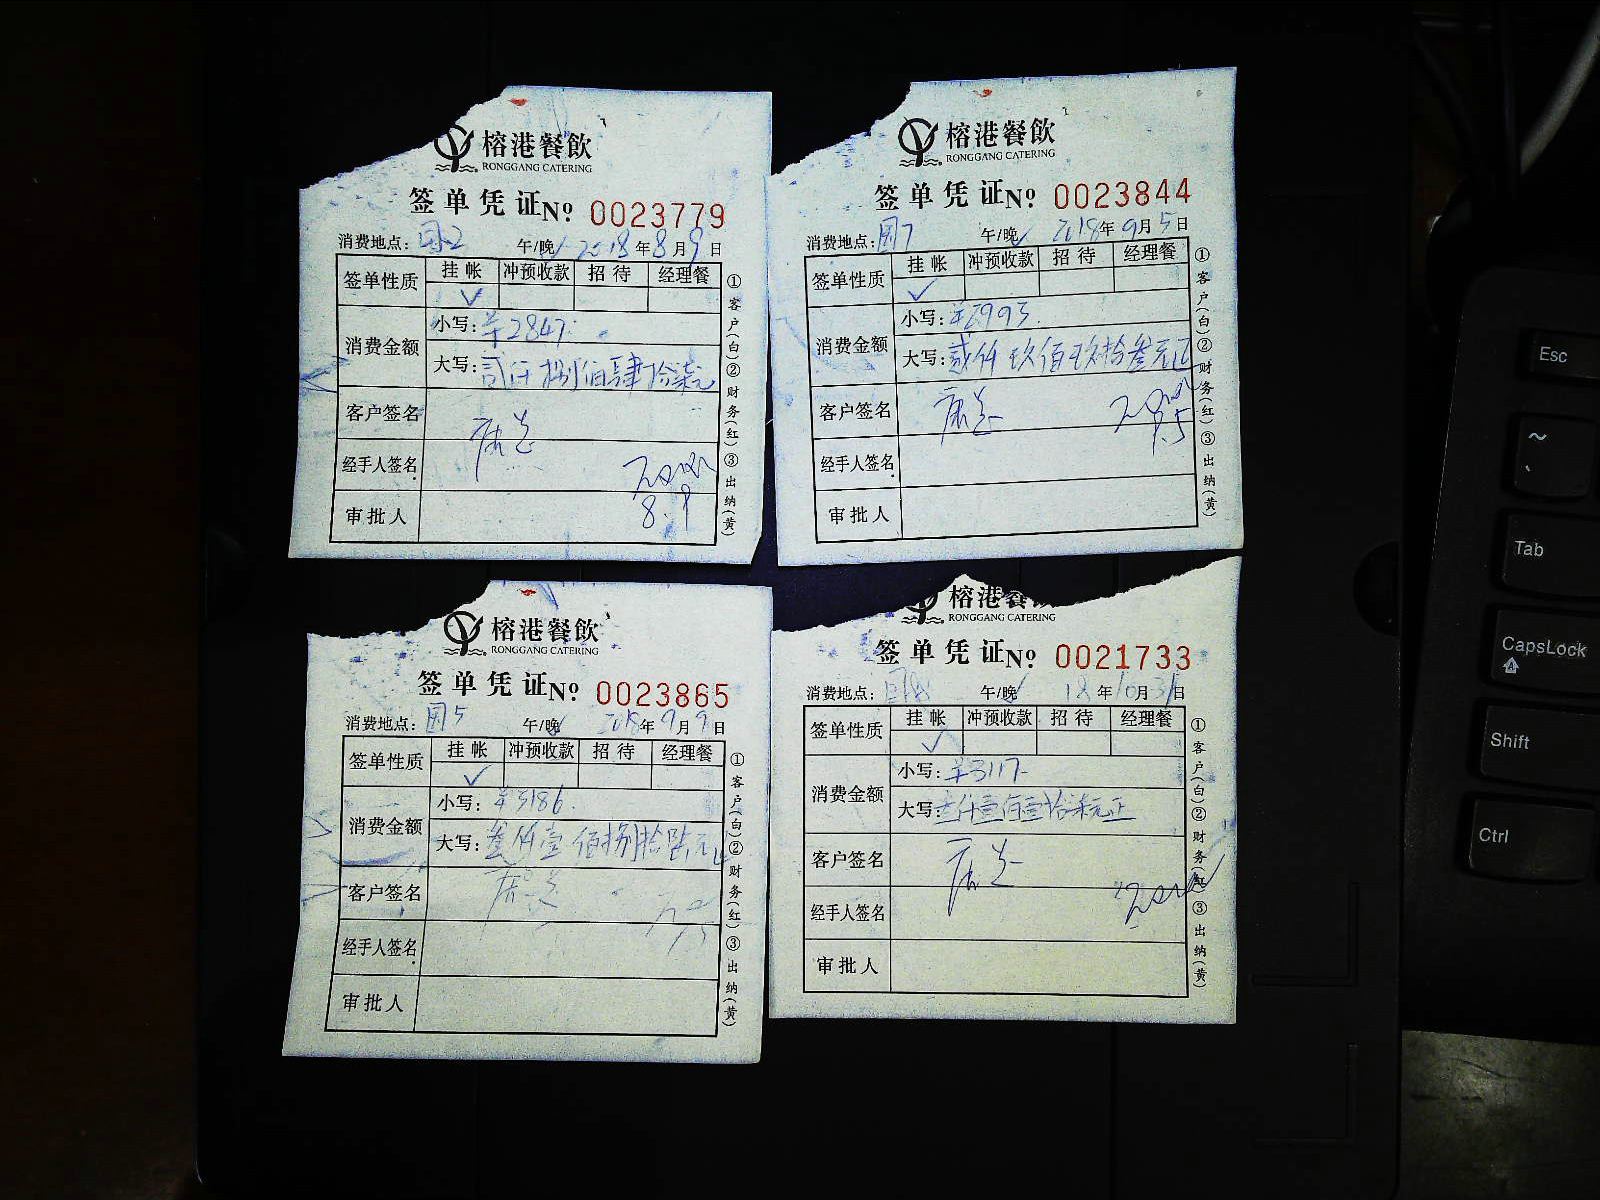 榕港餐飲
RONGGANG CATERING
签单凭证 № 0023779
消费地点： 午/晚✓ 2018年8月9日
签单性质 挂帐 冲预收款 招待 经理餐
✓
消费金额 小写：￥2847.
大写：贰仟捌佰肆拾柒元
客户签名
经手人签名
审批人
8.9
①客户(白)②财务(红)③出纳(黄)
榕港餐飲
RONGGANG CATERING
签单凭证 № 0023844
消费地点： 午/晚✓ 2018年9月5日
签单性质 挂帐 冲预收款 招待 经理餐
✓
消费金额 小写：￥2993.
大写：贰仟玖佰玖拾叁元正
客户签名
9.5
经手人签名
审批人
①客户(白)②财务(红)③出纳(黄)
榕港餐飲
RONGGANG CATERING
签单凭证 № 0023865
消费地点： 午/晚✓ 2018年9月9日
签单性质 挂帐 冲预收款 招待 经理餐
✓
消费金额 小写：￥3186.
大写：叁仟壹佰捌拾陆元正
客户签名
经手人签名
审批人
①客户(白)②财务(红)③出纳(黄)
榕港餐飲
RONGGANG CATERING
签单凭证 № 0021733
消费地点： 午/晚✓ 18年10月31日
签单性质 挂帐 冲预收款 招待 经理餐
✓
消费金额 小写：￥3117-
大写：叁仟壹佰壹拾柒元正
客户签名
经手人签名
审批人
①客户(白)②财务(红)③出纳(黄)
Esc
~
Tab
CapsLock
Shift
Ctrl